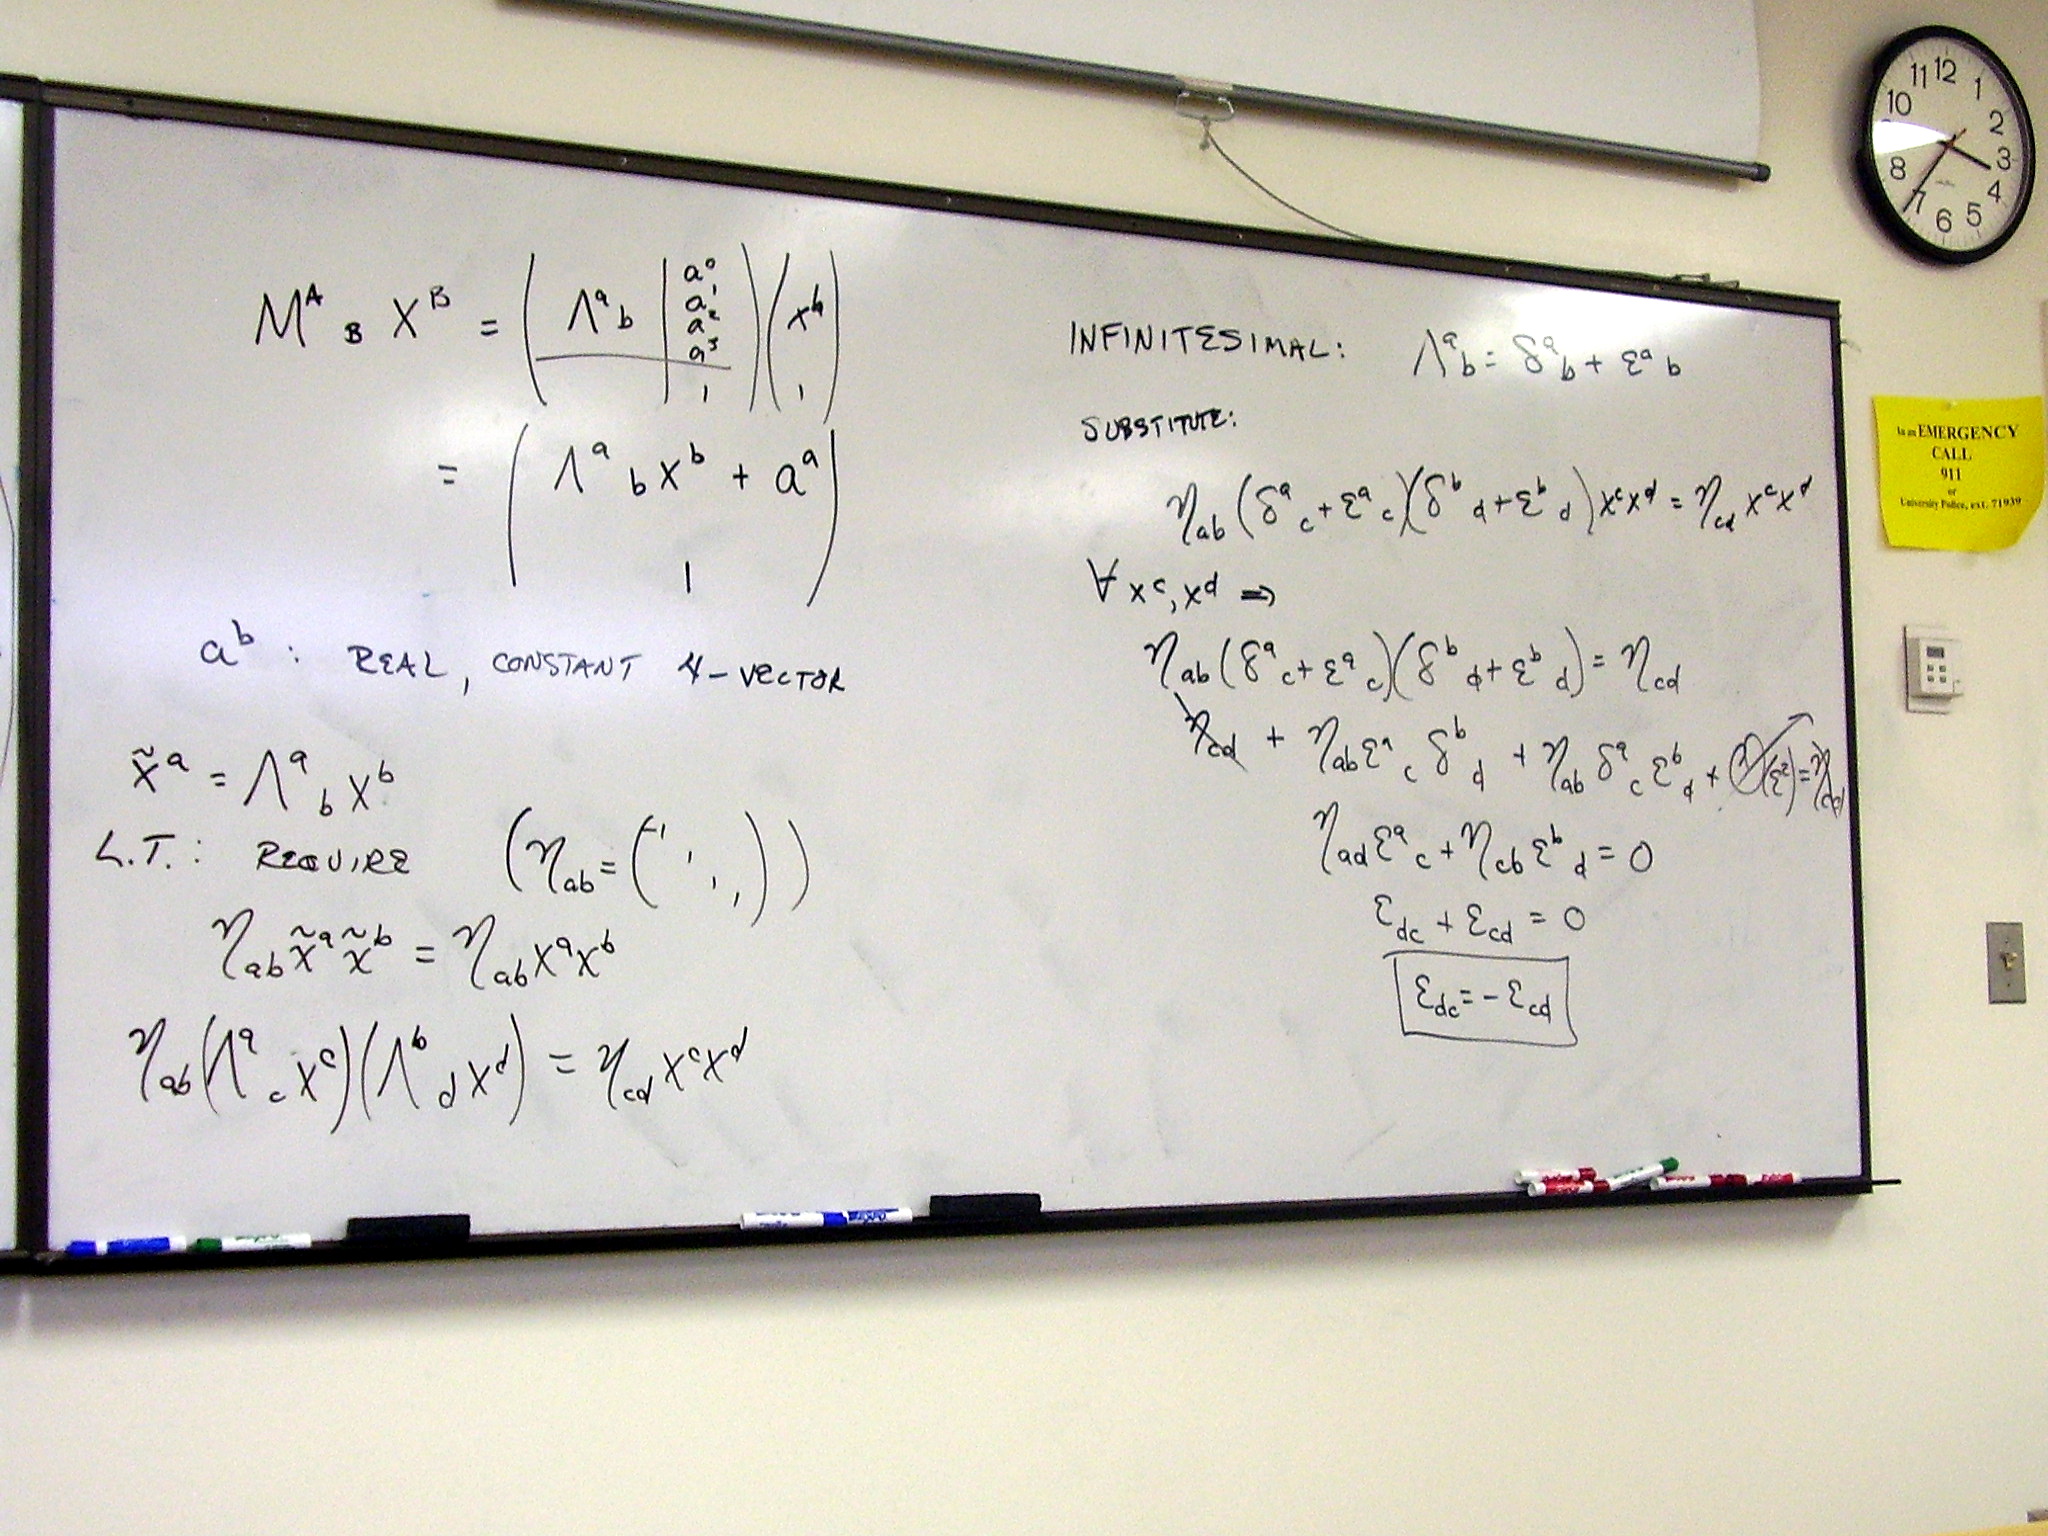 M^A_B X^B = ( Λ^a_b | a^0 a^1 a^2 a^3 1 ) ( x^b 1 )
= ( Λ^a_b x^b + a^a 1 )
a^b : REAL, CONSTANT 4-VECTOR
x̃^a = Λ^a_b x^b
L.T.: REQUIRE (η_ab = ( -1 1 1 1 ))
η_ab x̃^a x̃^b = η_ab x^a x^b
η_ab (Λ^a_c x^c)(Λ^b_d x^d) = η_cd x^c x^d
INFINITESIMAL: Λ^a_b = δ^a_b + ε^a_b
SUBSTITUTE:
η_ab (δ^a_c + ε^a_c)(δ^b_d + ε^b_d) x^c x^d = η_cd x^c x^d
∀ x^c, x^d ⇒
η_ab (δ^a_c + ε^a_c)(δ^b_d + ε^b_d) = η_cd
η_cd + η_ab ε^a_c δ^b_d + η_ab δ^a_c ε^b_d + O(ε^2) = η_cd
η_ad ε^a_c + η_cb ε^b_d = 0
ε_dc + ε_cd = 0
ε_dc = - ε_cd
11 12 1
10 2
3
8 4
7 6 5
In an EMERGENCY
CALL
911
or
University Police, ext. 71939